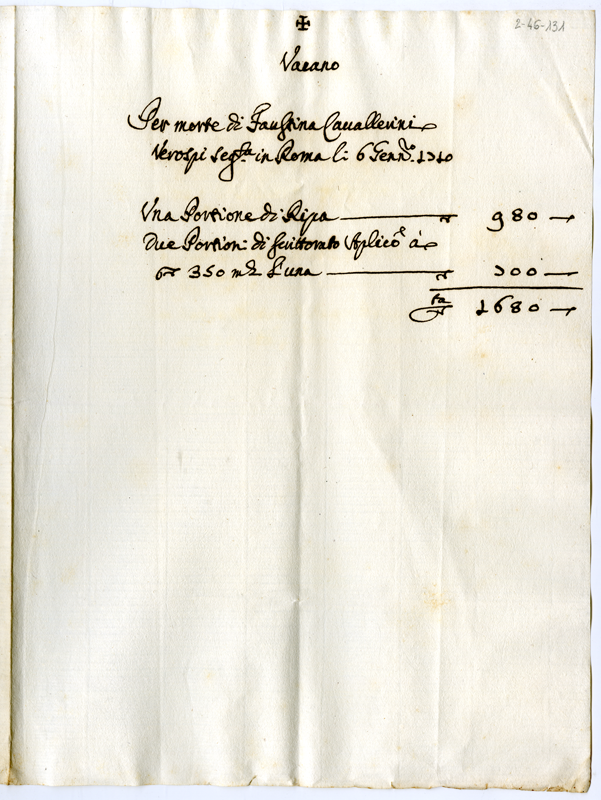 2-46-131
✠
Vacano
Per morte di Faustina Cavallerini
Verospi seg.ta in Roma li 6 Genn.o 1710
Una Portione di Ripa 980
Due Portioni di Scrittorato Aplico à
350 m.ta l'una 700
1680